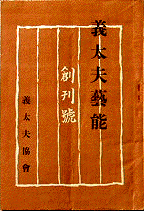 義太夫藝能
創刊號
義太夫協會